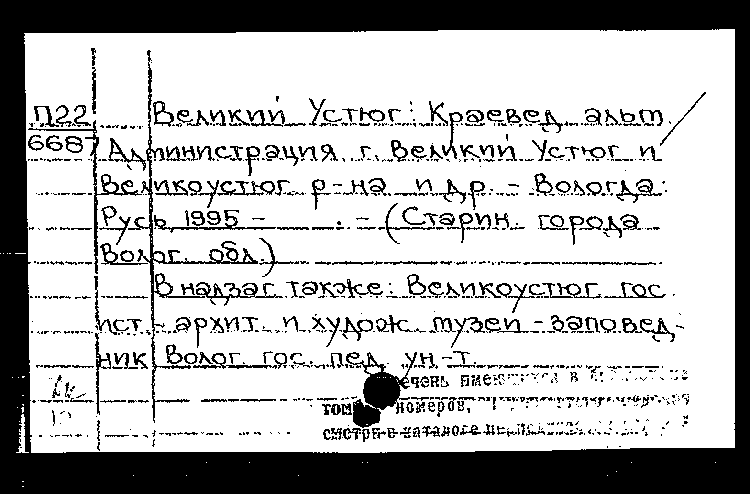 П22 Великий Устюг: Краевед. альм. /
6687 Администрация г. Великий Устюг и
Великоустюг. р-на и др. - Вологда:
Русь, 1995 - . - (Старин. города
Волог. обл.)
В надзаг. также: Великоустюг. гос.
ист.- архит. и худож. музей-заповед-
ник, Волог. гос. пед. ун-т.
ечень имеющихся в
томов номеров,
смотри в каталоге